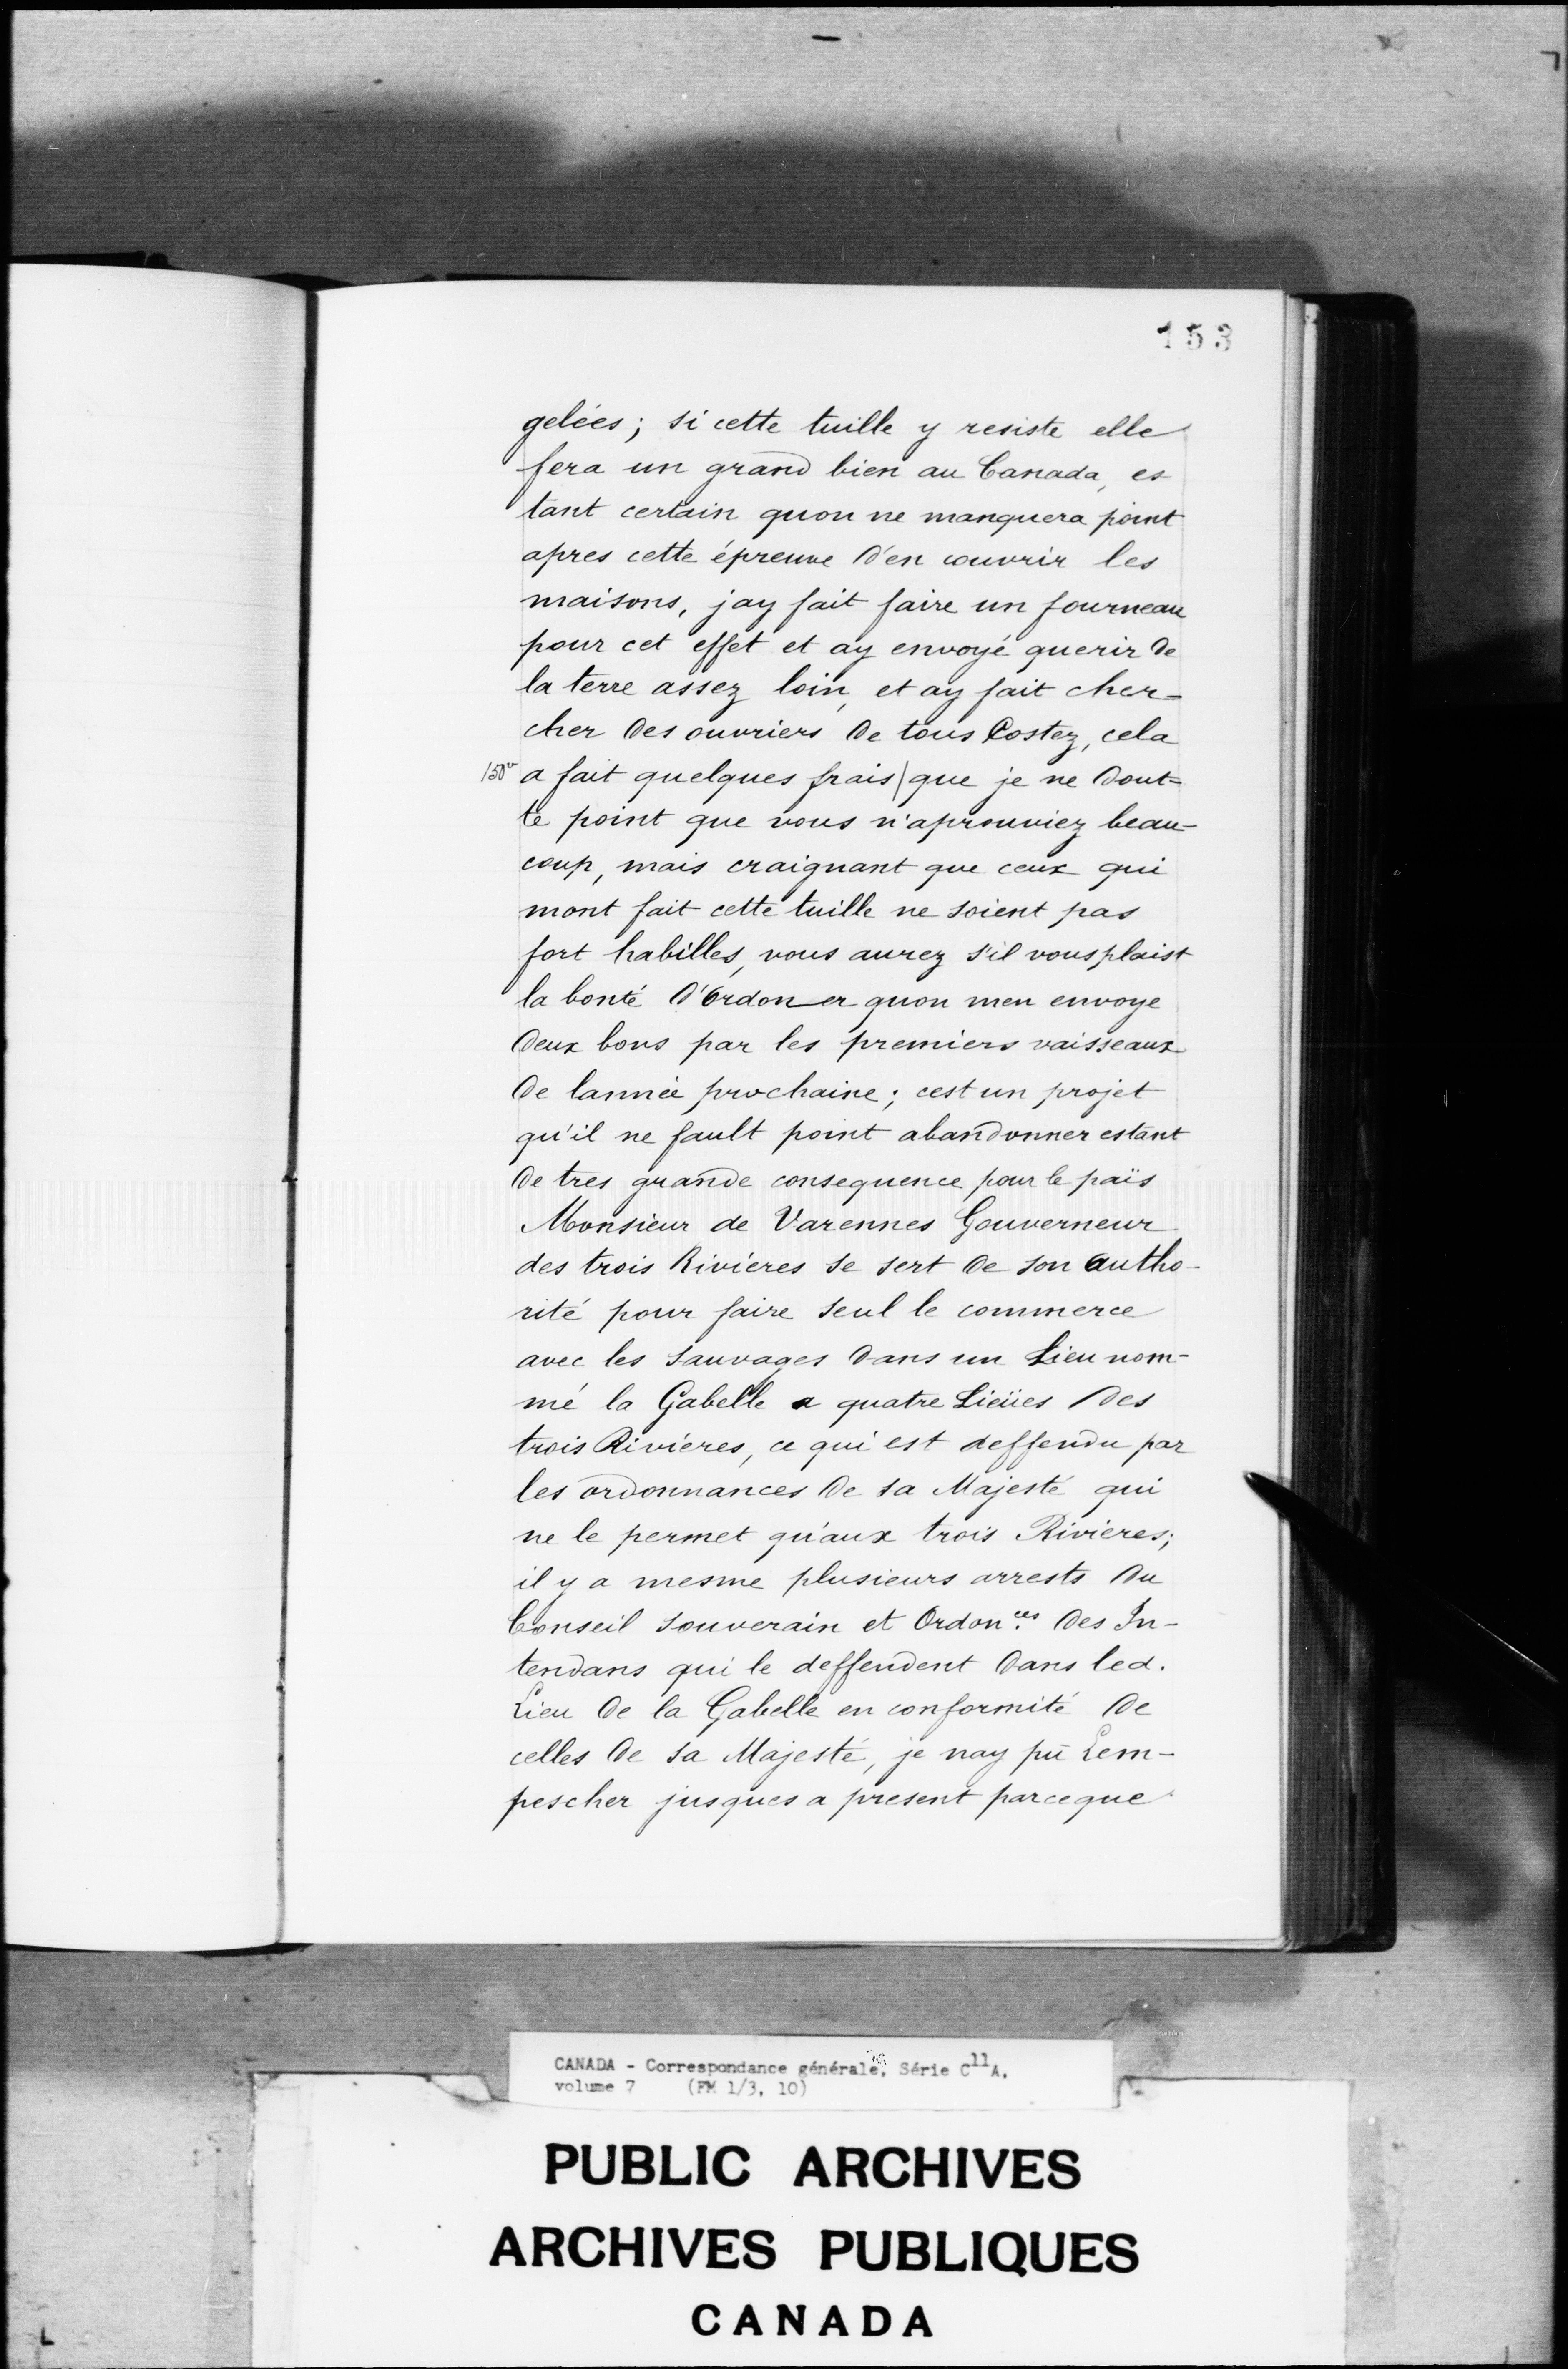 153
gelées; si cette tuille y resiste elle
fera un grand bien au Canada, es
tant certain quon ne manquera point
apres cette épreuve d'en couvrir les
maisons, jay fait faire un fourneau
pour cet effet et ay envoyé querir de
la terre assez loin, et ay fait cher-
cher des ouvriers de tous Costez, cela
150vº a fait quelques frais | que je ne dout=
te point que vous n'aprouviez beau-
coup, mais craignant que ceux qui
mont fait cette tuille ne soient pas
fort habilles, vous aurez s'il vous plaist
la bonté d'Ordoner quon men envoye
deux bons par les premiers vaisseaux
de lannée prochaine; cest un projet
qu'il ne fault point abandonner estant
de tres grande consequence pour le païs
Monsieur de Varennes Gouverneur
des trois Rivieres se sert de son autho-
rité pour faire seul le commerce
avec les sauvages dans un Lieu nom-
mé la Gabelle a quatre Lieües des
trois Rivieres, ce qui est deffendu par
les ordonnances de sa Majesté qui
ne le permet qu'aux trois Rivieres;
il y a mesme plusieurs arrests du
Conseil souverain et Ordon.ces des In-
tendans qui le deffendent dans led.
Lieu de la Gabelle en conformité de
celles de sa Majesté, je nay pû Lem-
pescher jusques a present parceque
CANADA - Correspondance générale, Série C11A,
volume 7 (FM 1/3, 10)
PUBLIC ARCHIVES
ARCHIVES PUBLIQUES
CANADA